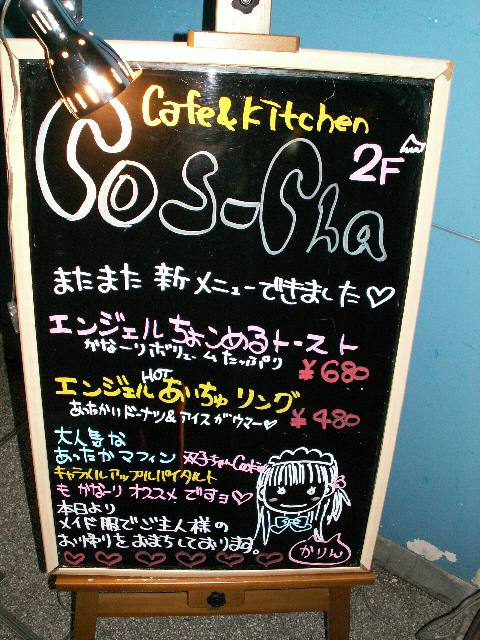 Cafe & Kitchen
Cos-Cha
2F
またまた 新メニューできました♡
エンジェルちょこめるトースト
がなーりボリュームたっぷり
¥680
HOT
エンジェルあいちゅリング
あったかいドーナツ&アイスがウマー♡
¥480
大人気な
あったかマフィン 双子ちゃんCookie
キャラメルアップルパイタルト
も かなーり オススメ ですョ♡
本日より
メイド服でご主人様の
お帰りをおまちしております。
かりん